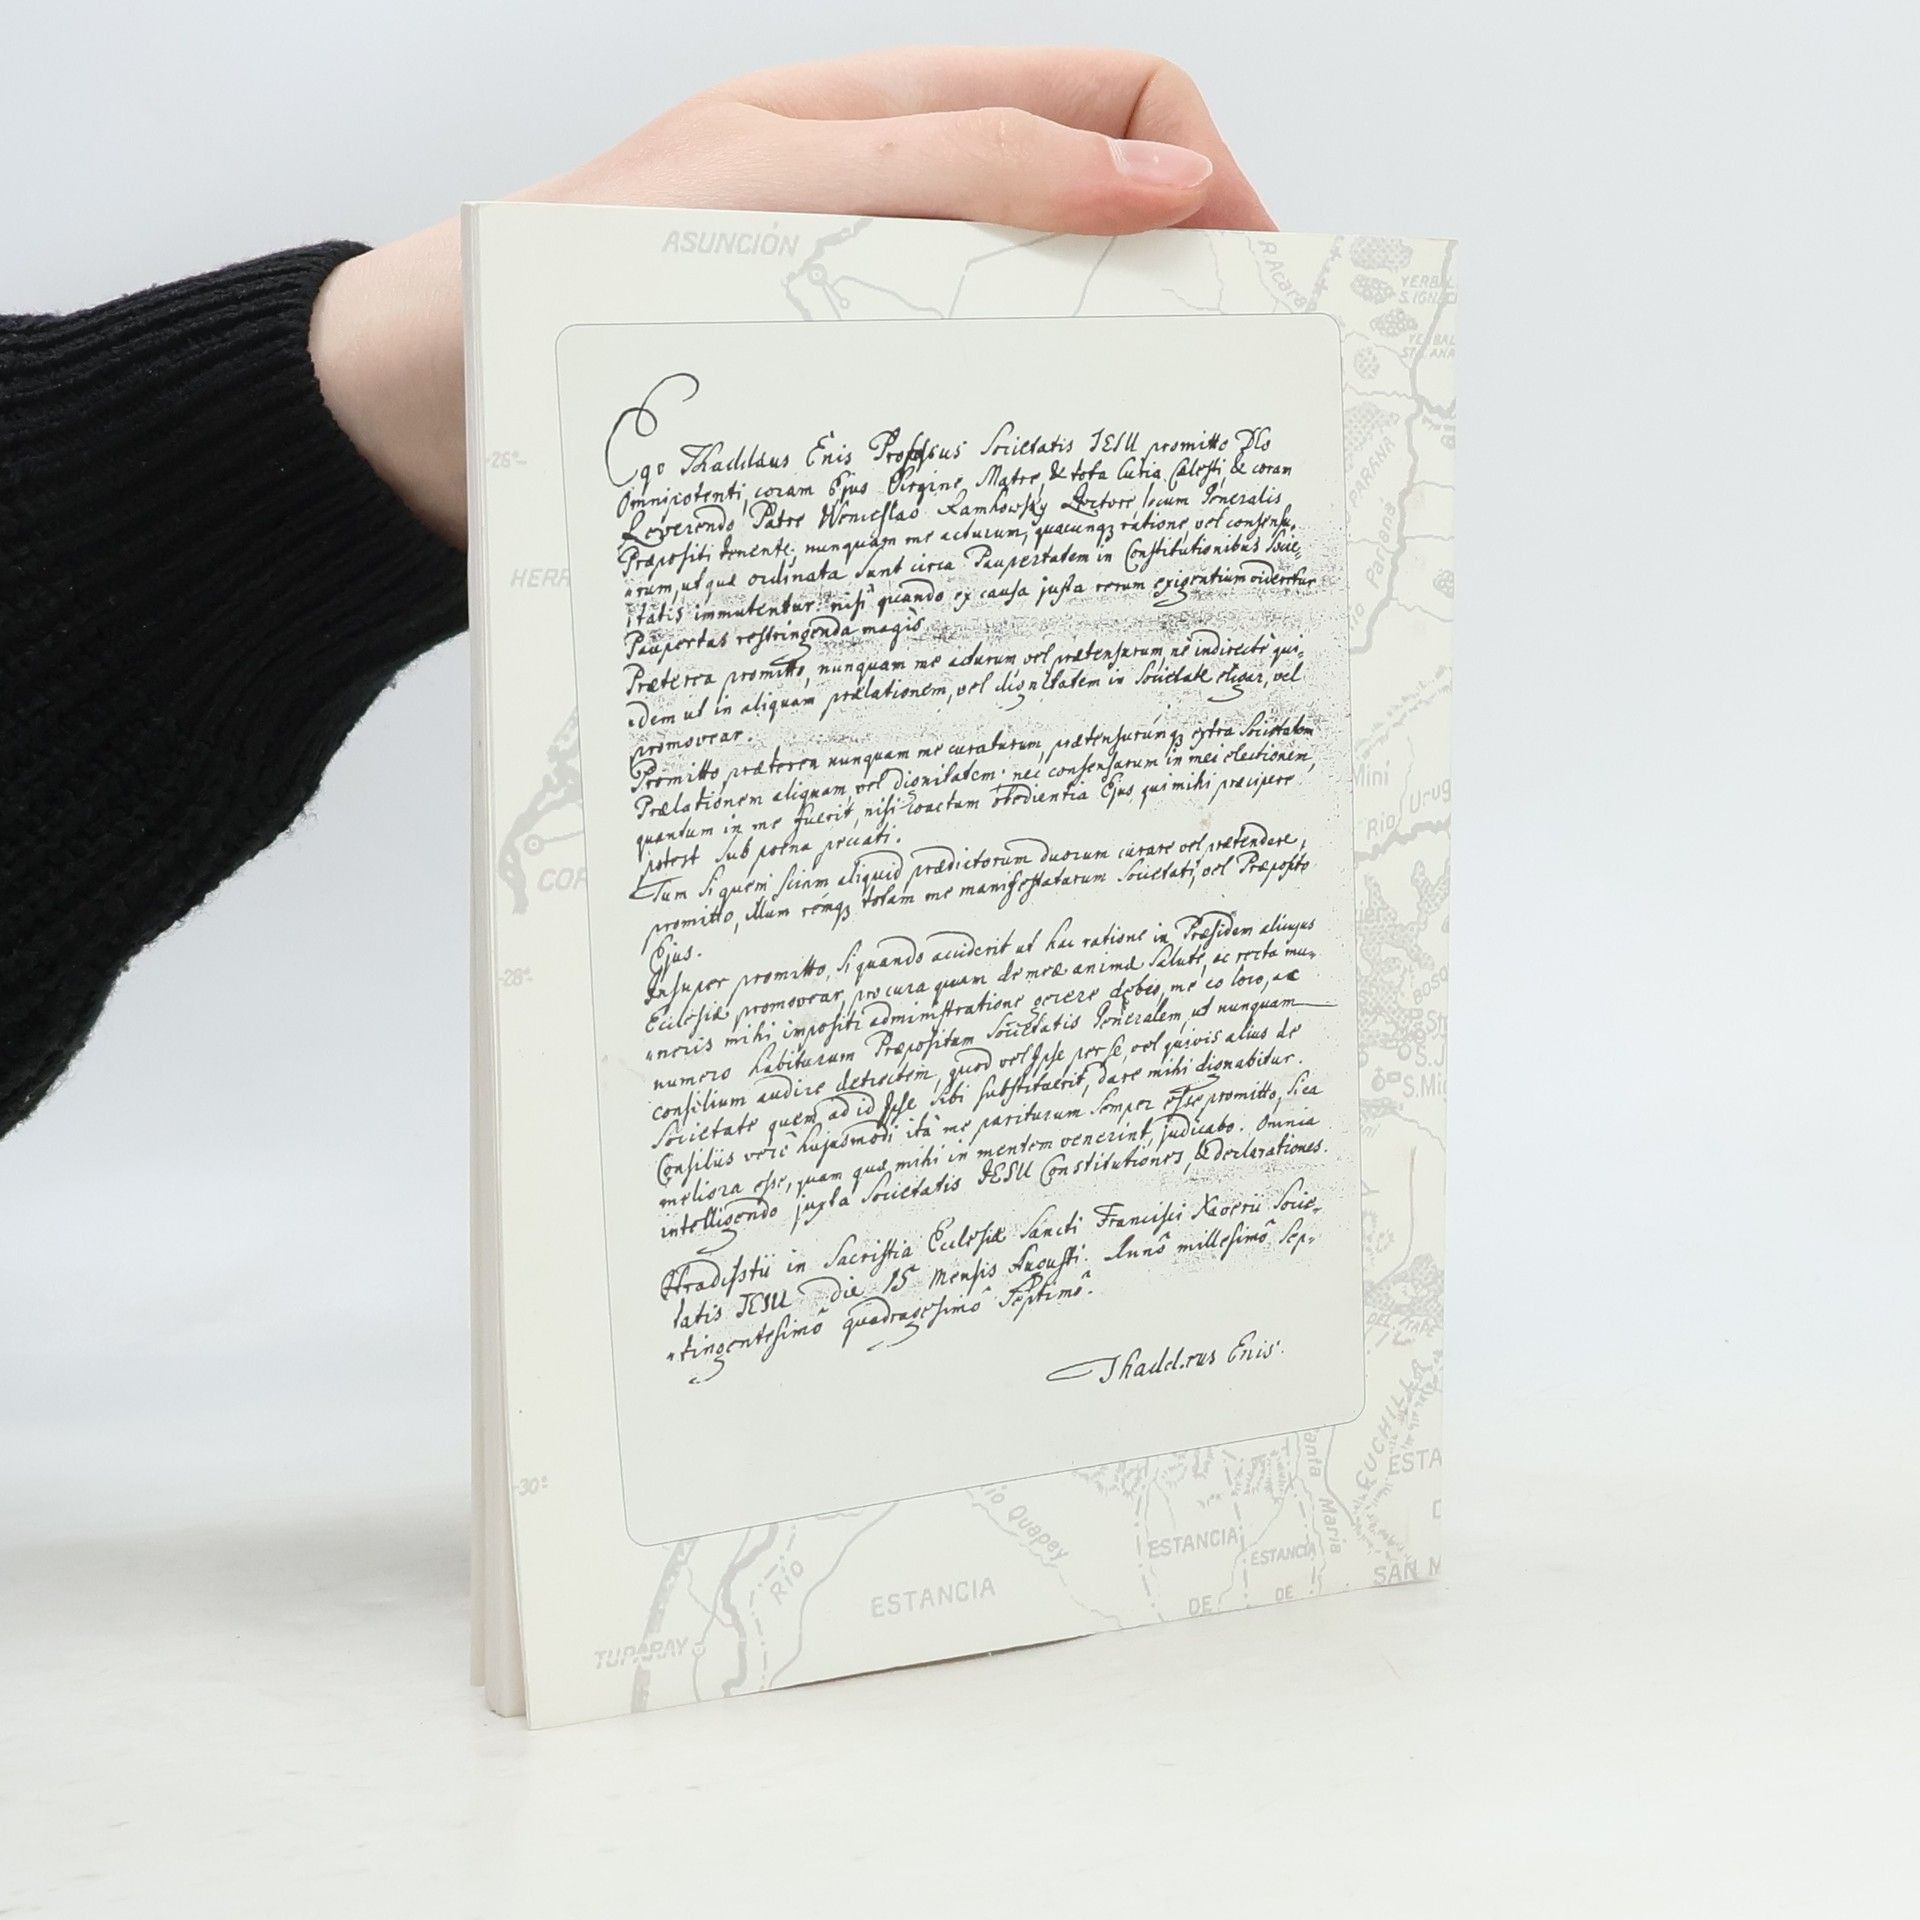 ASUNCIÓN
R Acara
YERBAL
S. IGNACI
YERBAL
STA. ANA
26°
PARANÁ
Rio Parianá
HERR
COR
Mini
Urug
Rio
28°
S.Mig
DEL TAPE
CUCHILLA
ESTA
30°
Rio
io Quapey
Santa
Maria
ESTANCIA
ESTANCIA
ESTANCIA
DE
DE
SAN M
TUPARAY
Ego Thaddæus Enis Professus Societatis IESU promitto Dẽo
Omnipotenti, coram Ejus Virgine Matre, & tota Curia Cælesti, & coram
Reverendo Patre Wenceslao Kamhowsky Rectore locum Generalis
Præpositi tenente; nunquam me acturum, quacunqꝫ ratione, vel consensu-
„rum, ut quæ ordinata sunt circa Paupertatem in Constitutionibus Socie-
„tatis immutentur: nisi quando ex causa justa rerum exigentium videretur
Paupertas restringenda magis
Præterea promitto, nunquam me acturum vel prætensurum, ne indirectè qui-
„dem ut in aliquam prælationem, vel dignitatem in Societate eligar, vel
promovear.
Promitto præterea nunquam me curaturum, prætensurumqꝫ extra Societatem
Prælationem aliquam, vel dignitatem: nec consensurum in mei electionem,
quantum in me fuerit, nisi coactum obedientia Ejus, qui mihi præcipere
potest sub pœna peccati.
Tum si quem sciam aliquid prædictorum duorum curare vel prætendere,
promitto, illum remqꝫ totam me manifestaturum Societati, vel Præposito
Ejus.
Insuper promitto, si quando acciderit ut hac ratione in Præsidem alicujus
Ecclesiæ promovear, pro cura quam de meæ animæ salute, ac recta mu-
„neris mihi impositi administratione gerere debeo, me eo loco, ac
numero habiturum Præpositum Societatis Generalem, ut nunquam
consilium audire detrectem, quod vel Ipse per se, vel quivis alius de
Societate quem ad id Ipse sibi substituerit, dare mihi dignabitur.
Consiliis verè hujusmodi ità me pariturum semper esse promitto, si ea
meliora esse, quam quæ mihi in mentem venerint, judicabo. Omnia
intelligendo juxta Societatis IESU Constitutiones, & declarationes.
Hradistii in Sacristia Ecclesiæ Sancti Francisci Xaverii Socie-
tatis IESU die 15 Mensis Augusti. Annô millesimô Sep-
„tingentesimô quadragesimô Septimô.
Thaddæus Enis.